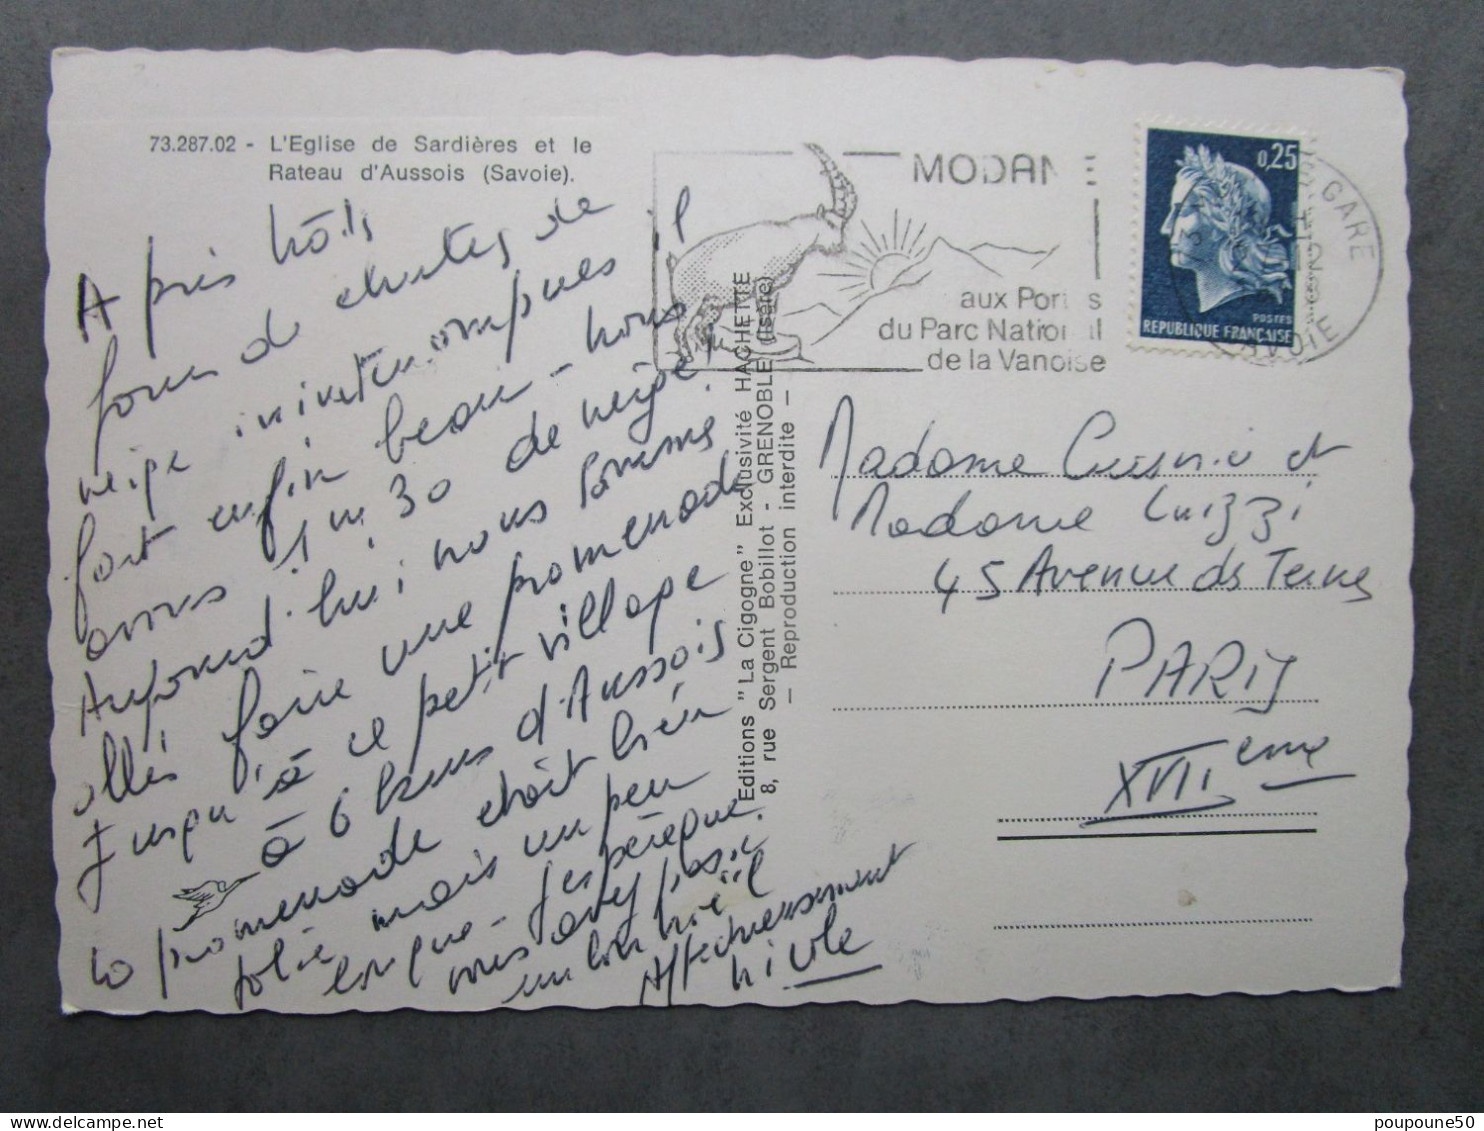 73.287.02 - L'Eglise de Sardières et le
Rateau d'Aussois (Savoie).
Après trois
jours de chutes de
neige ininterrompues il
fait enfin beau - nous
avons 1 m 30 de neige!
Aujourd'hui nous sommes
allés faire une promenade
jusqu'à ce petit village
à 6 kms d'Aussois
la promenade était bien
jolie mais un peu
longue - J'espère que
vous avez passé
un bon Noël
Affectueusement
Nicole
Editions "La Cigogne" Exclusivité HACHETTE
8, rue Sergent Bobillot - GRENOBLE (Isère)
— Reproduction interdite —
MODANE
aux Portes
du Parc National
de la Vanoise
0,25
POSTES
REPUBLIQUE FRANÇAISE
GARE
SAVOIE
Madame Cusnie et
Madame Luizzi
45 Avenue des Ternes
PARIS
XVIIème
poupoune50